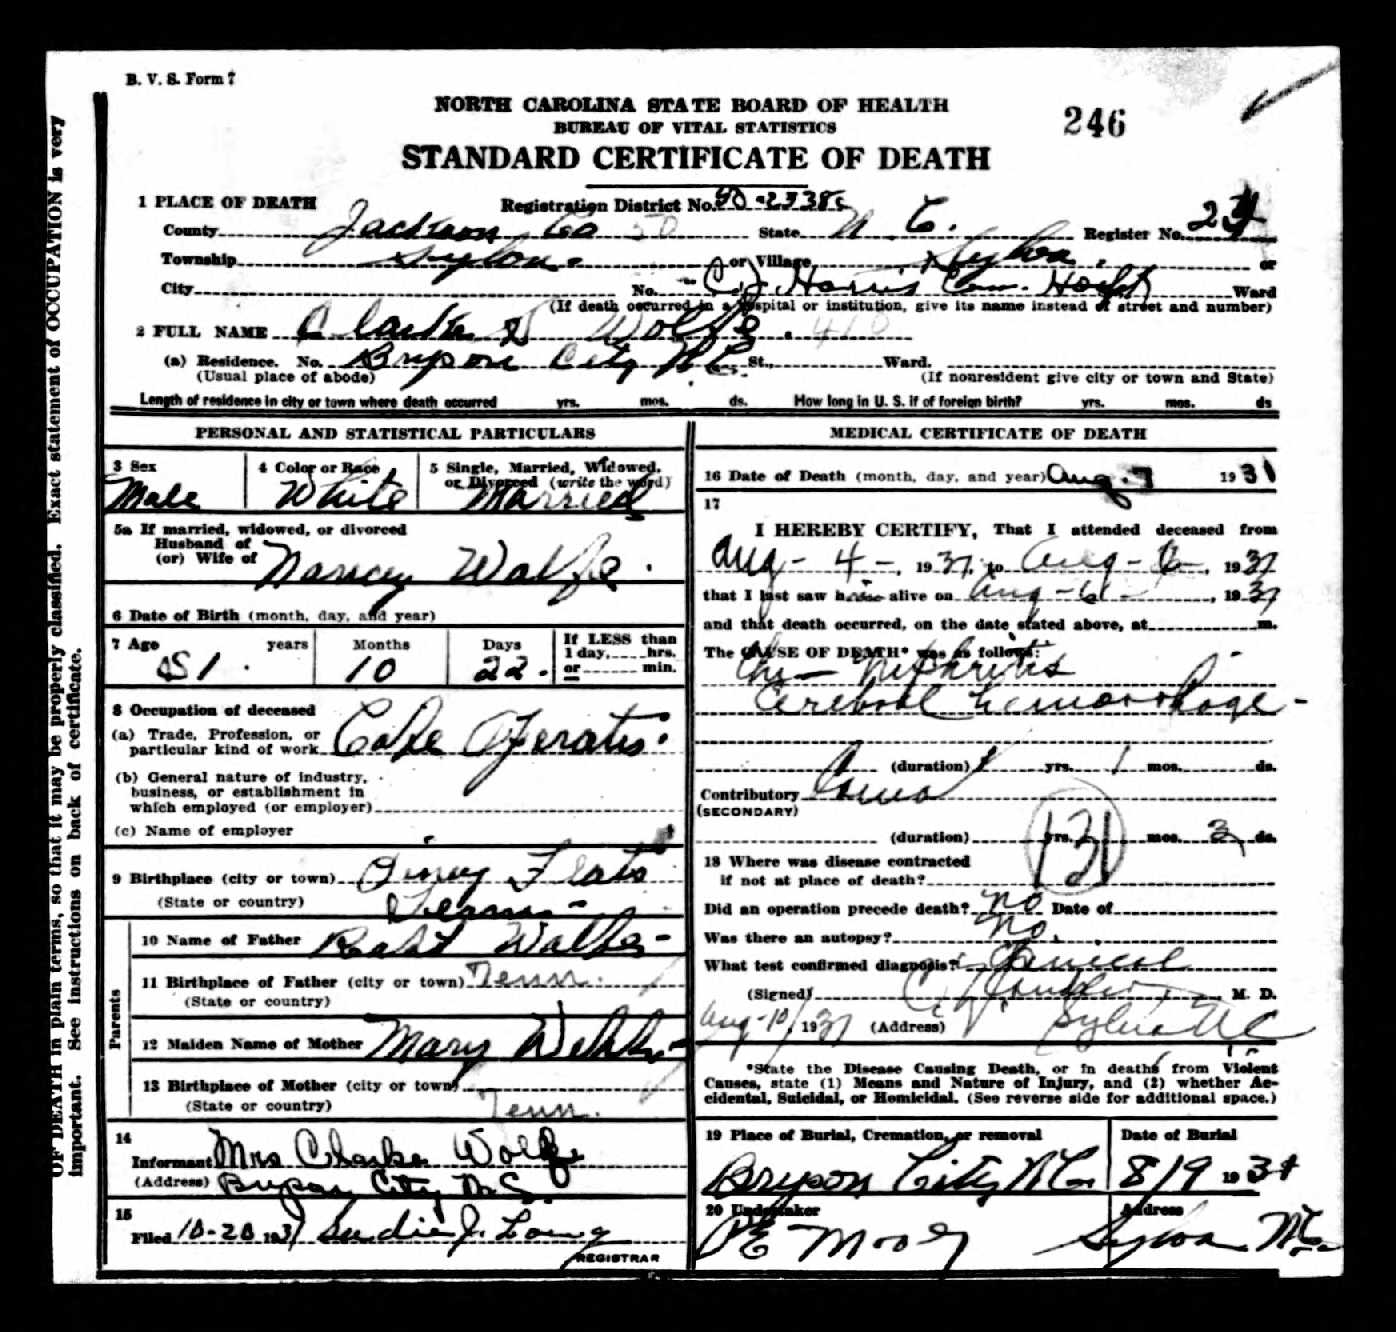 B. V. S. Form 7
NORTH CAROLINA STATE BOARD OF HEALTH
BUREAU OF VITAL STATISTICS
246
STANDARD CERTIFICATE OF DEATH
1 PLACE OF DEATH Registration District No. 50-2338
County Jackson Co 50 State N. C. Register No. 24
Township Sylva. or Village Sylva. or
City No. C. J. Harris Com. Hospt Ward
(If death occurred in a hospital or institution, give its name instead of street and number)
2 FULL NAME Clarke Wolfe. 410
(a) Residence. No. Bryson City N C St., Ward.
(Usual place of abode) (If nonresident give city or town and State)
Length of residence in city or town where death occurred yrs. mos. ds. How long in U. S. if of foreign birth? yrs. mos. ds
PERSONAL AND STATISTICAL PARTICULARS
3 Sex 4 Color or Race 5 Single, Married, Widowed, or Divorced (write the word)
Male White Married
5a If married, widowed, or divorced
Husband of
(or) Wife of Nancy Wolfe.
6 Date of Birth (month, day, and year)
7 Age years Months Days If LESS than
1 day, hrs.
51. 10 22. or min.
8 Occupation of deceased
(a) Trade, Profession, or
particular kind of work Cafe
(b) General nature of industry,
business, or establishment in
which employed (or employer)
(c) Name of employer
9 Birthplace (city or town) Piney Flats
(State or country) Tenn-
Parents
10 Name of Father Wolfe-
11 Birthplace of Father (city or town) Tenn.
(State or country)
12 Maiden Name of Mother Mary
13 Birthplace of Mother (city or town)
(State or country) Tenn.
14
Informant Mrs Clarke Wolfe
(Address) Bryson City N. C.
15
Filed 10-20 1931 Sudie J. Long
REGISTRAR
MEDICAL CERTIFICATE OF DEATH
16 Date of Death (month, day, and year) Aug. 7 1931
17
I HEREBY CERTIFY, That I attended deceased from
Aug - 4 -, 1931, to Aug - 6 -, 1931
that I last saw him alive on Aug - 6 -, 1931
and that death occurred, on the date stated above, at m.
The CAUSE OF DEATH* was as follows:
Chr- Nephritis
Cerebral hemorrhage -
(duration) yrs. 1 mos. ds.
Contributory Coma
(SECONDARY)
(duration) yrs. mos. 3 ds.
131
18 Where was disease contracted
if not at place of death?
Did an operation precede death? no Date of
Was there an autopsy? No.
What test confirmed diagnosis? Clinical
(Signed) M. D.
Aug-10/, 1931 (Address) Sylva N C
*State the Disease Causing Death, or in deaths from Violent
Causes, state (1) Means and Nature of Injury, and (2) whether Ac-
cidental, Suicidal, or Homicidal. (See reverse side for additional space.)
19 Place of Burial, Cremation, or removal Date of Burial
Bryson City N C. 8/9 1931
20 Undertaker Address
P E Moody Sylva N. C.
OF DEATH in plain terms, so that it may be properly classified. Exact statement of OCCUPATION is very
important. See instructions on back of certificate.